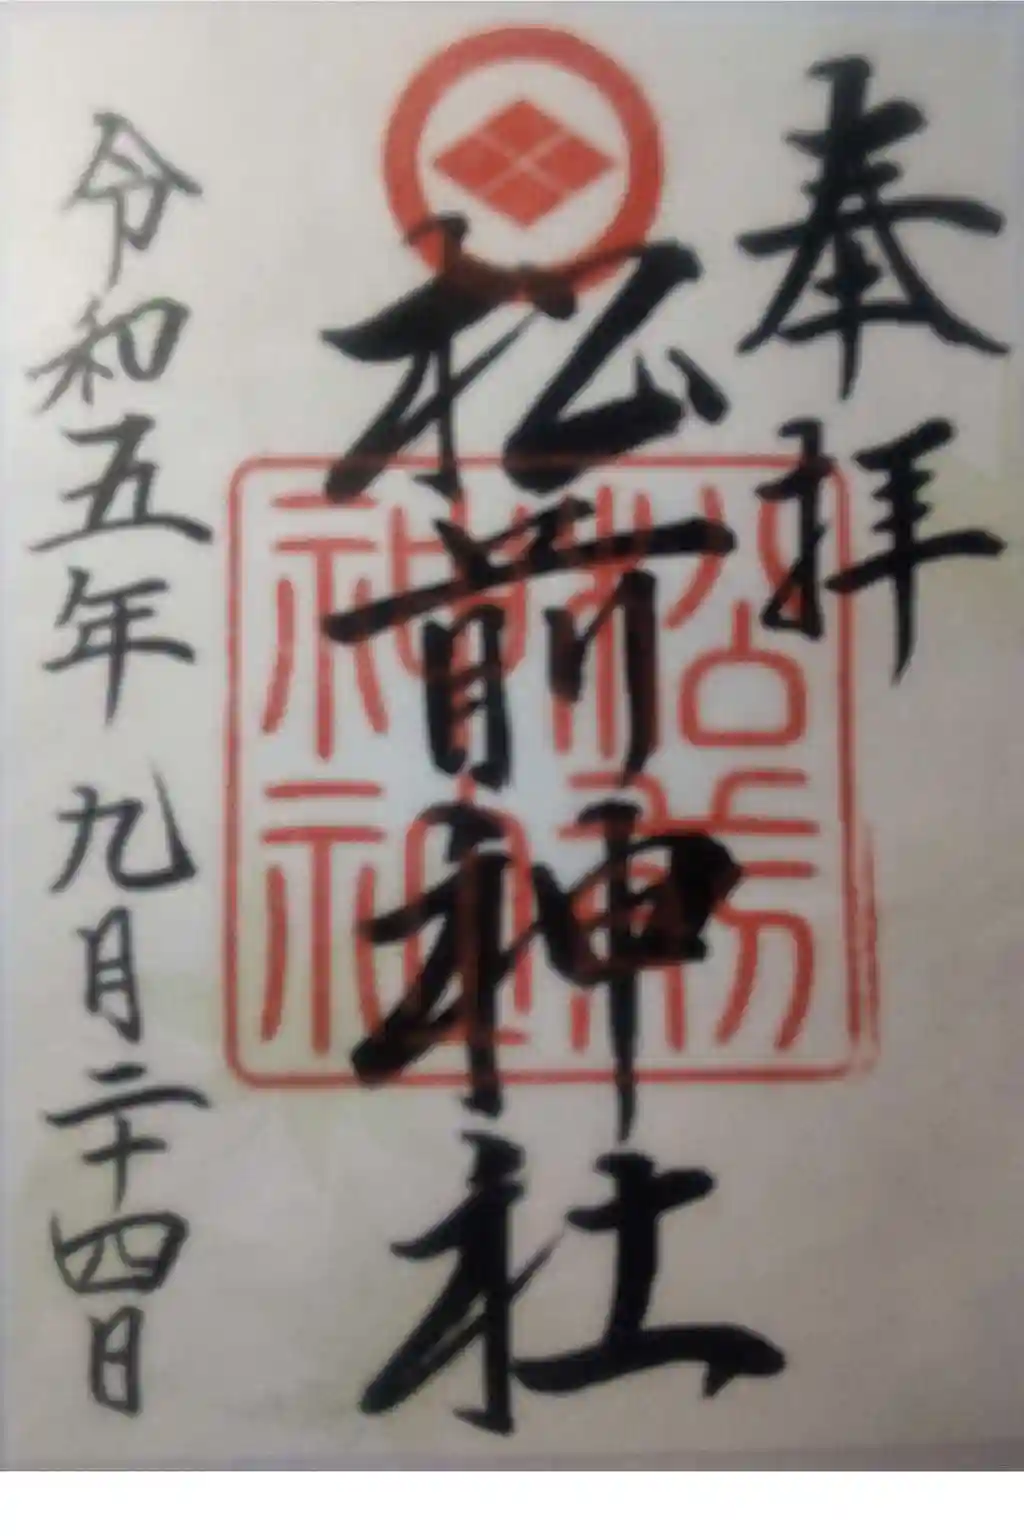 奉拝
松前神社
松前
神社
令和五年九月二十四日